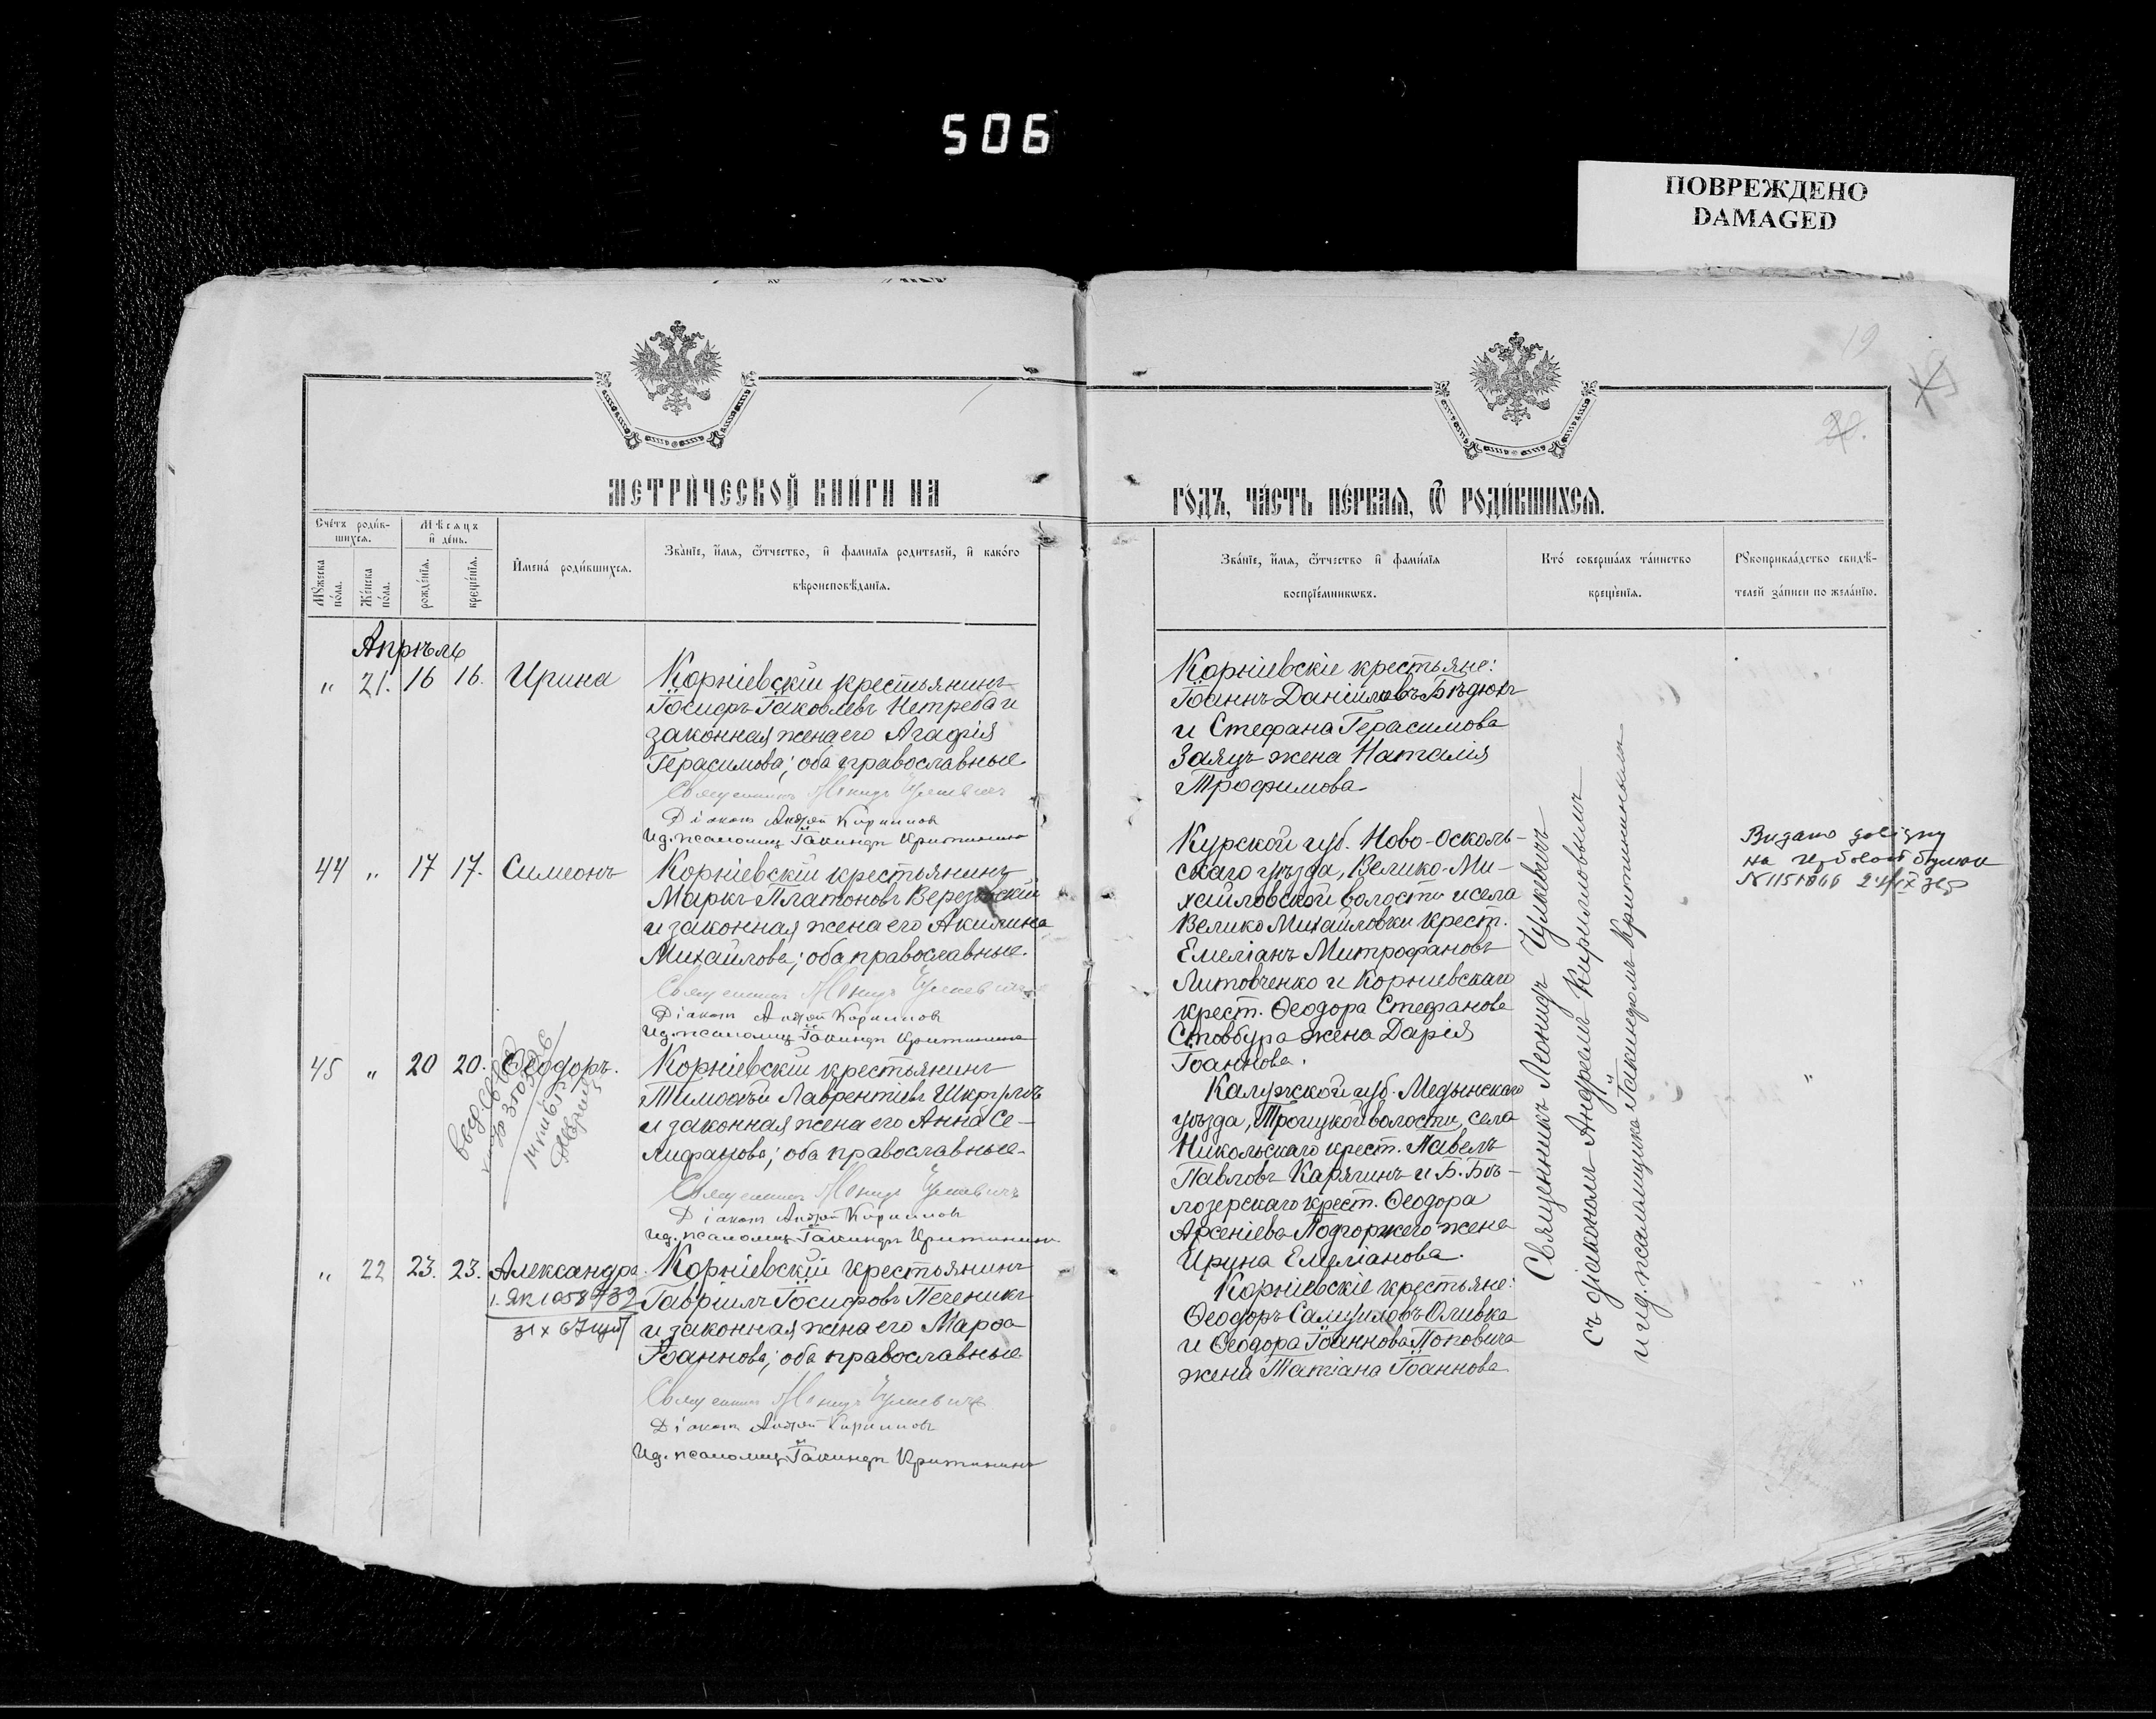 506
ПОВРЕЖДЕНО
DAMAGED
19
МЕТРИ́ЧЕСКОЙ КНИ́ГИ НА
ГО́ДЪ, ЧА́СТЬ ПЕ́РВАЯ, Ѿ РОДИ́ВШИХСЯ.
Сче́тъ роди́в-
шихся.
Мѣ́сяцъ
и҆ де́нь.
Мꙋ́жеска
по́ла.
Же́нска
по́ла.
рожде́нїя.
креще́нїя.
И҆мена̀ роди́вшихся.
Зва́нїе, и҆́мя, ѻ҆́тчество, и҆ фамилїя родителей, и҆ како́го
вѣроисповѣ́данїя.
Зва́нїе, и҆́мя, ѻ҆́тчество и҆ фами́лїя
воспрїе́мникѡвъ.
Кто̀ соверша́лъ та́инство
креще́нїя.
Рꙋкоприкла́дство свидѣ́-
телей за́писи по жела́нїю.
Апрѣль
" 21. 16 16. Ирина
Корніевскій крестьянинъ
Іосифъ Іаковлевъ Нетреба и
законная жена его Агафія
Герасимова; оба православные
Священникъ Леонидъ Чулкевичъ
Діаконъ Андрей Кириловъ
Ид. псаломщ. Іакинѳъ Критининъ
Корніевскіе крестьяне:
Іоаннъ Даніиловъ Бѣдюкъ
и Стефана Герасимова
Заяцъ жена Наталія
Трофимова
44 " 17 17. Симеонъ
Корніевскій крестьянинъ
Маркъ Платоновъ
и законная жена его Акилина
Михайлова; оба православные.
Священникъ Леонидъ Чулкевичъ
Діаконъ Андрей Кириловъ
Ид. псаломщ. Іакинѳъ Критининъ
Курской губ. Ново-Осколь-
скаго уѣзда, Велико-Ми-
хайловской волости и села
Велико Михайловки крест.
Емеліанъ Митрофановъ
Литовченко и Корніевскаго
крест. Ѳеодора Стефанова
Стовбура жена Дарія
Іоаннова.
Видано довідку
на
24/IX
45 " 20 20. Ѳеодоръ.
Корніевскій крестьянинъ
Тимоѳей Лаврентіевъ
и законная жена его Анна Се-
лифанова; оба православные.
Священникъ Леонидъ Чулкевичъ
Діаконъ Андрей Кириловъ
Ид. псаломщ. Іакинѳъ Критининъ
Калужской губ. Медынскаго
уѣзда, Троицкой волости, села
Никольскаго крест. Павелъ
Павловъ Карягинъ и Б. Бѣ-
лозерскаго крест. Ѳеодора
Арсеніева Подгоржего жена
Ирина Емеліанова.
" 22 23. 23. Александра.
1-ЯК 1058732
Корніевскій крестьянинъ
Гавріилъ Іосифовъ Печеникъ
и законная жена его Марѳа
Іоаннова; оба православные
Священникъ Леонидъ Чулкевичъ
Діаконъ Андрей Кириловъ
Ид. псаломщ. Іакинѳъ Критининъ
Корніевскіе крестьяне:
Ѳеодоръ Самуиловъ Оливка
и Ѳеодора Іоаннова Поповича
жена Татіана Іоаннова
Священникъ Леонидъ Чулкевичъ
съ діакономъ Андреемъ Кириловымъ
и и.д. псаломщика Іакинѳомъ Критининымъ